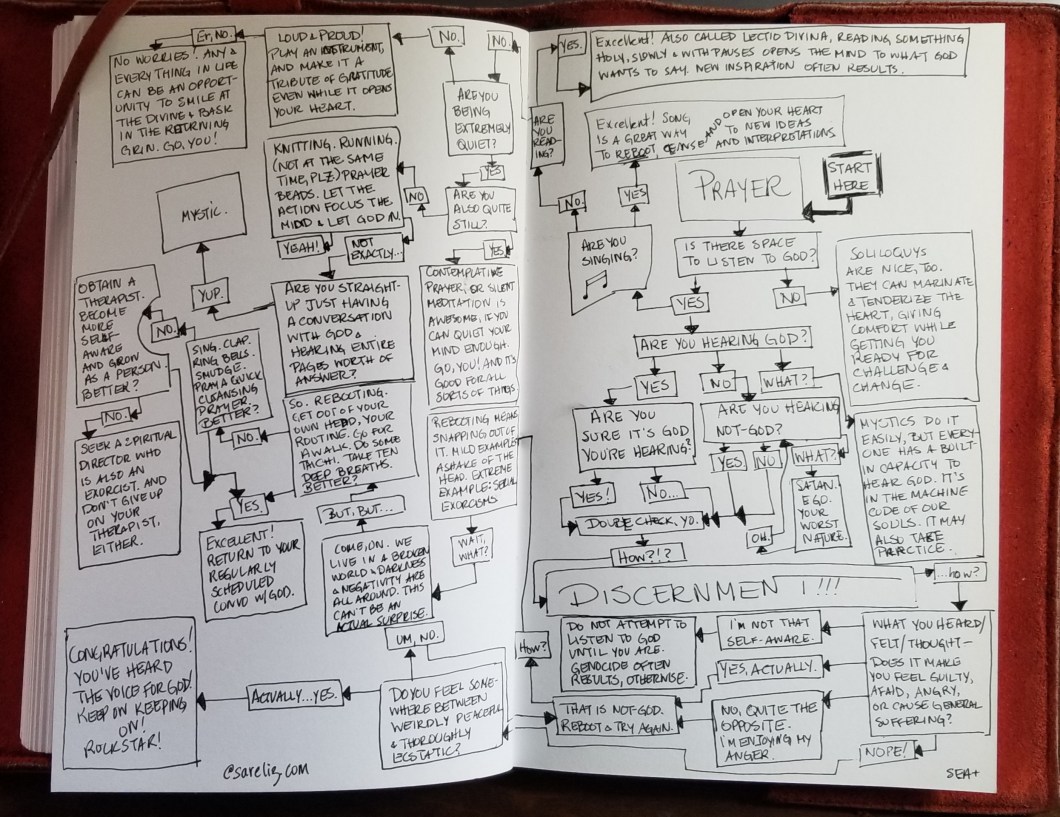 Er, No.
NO WORRIES! ANY &
EVERYTHING IN LIFE
CAN BE AN OPPORT-
UNITY TO SMILE AT
THE DIVINE & BASK
IN THE RETURNING
GRIN. GO, YOU!
LOUD & PROUD!
PLAY AN INSTRUMENT,
AND MAKE IT A
TRIBUTE OF GRATITUDE
EVEN WHILE IT OPENS
YOUR HEART.
No.
No.
ARE YOU
BEING
EXTREMELY
QUIET?
KNITTING. RUNNING.
(NOT AT THE SAME
TIME, PLZ) PRAYER
BEADS. LET THE
ACTION FOCUS THE
MIND & LET GOD IN.
NO
YES
ARE YOU
ALSO QUITE
STILL?
YEAH!
NOT
EXACTLY...
YES
MYSTIC.
YUP.
CONTEMPLATIVE
PRAYER, OR SILENT
MEDITATION IS
AWESOME, IF YOU
CAN QUIET YOUR
MIND ENOUGH.
GO, YOU! AND IT'S
GOOD FOR ALL
SORTS OF THINGS
ARE YOU STRAIGHT-
UP JUST HAVING
A CONVERSATION
WITH GOD &
HEARING ENTIRE
PAGES WORTH OF
ANSWER?
OBTAIN A
THERAPIST.
BECOME
MORE
SELF-
AWARE
AND GROW
AS A PERSON.
BETTER?
NO.
SING. CLAP.
RING BELLS.
SMUDGE.
PRAY A QUICK
CLEANSING
PRAYER.
BETTER?
NO.
SO. REBOOTING.
GET OUT OF YOUR
OWN HEAD, YOUR
ROUTING. GO FOR
A WALK. DO SOME
TAICHI. TAKE TEN
DEEP BREATHS.
BETTER?
REBOOTING MEANS
SNAPPING OUT OF
IT. MILD EXAMPLE:
A SHAKE OF THE
HEAD. EXTREME
EXAMPLE: SERIAL
EXORCISMS
NO.
SEEK A SPIRITUAL
DIRECTOR WHO
IS ALSO AN
EXORCIST. AND
DON'T GIVE UP
ON YOUR
THERAPIST,
EITHER.
YES.
EXCELLENT!
RETURN TO YOUR
REGULARLY
SCHEDULED
CONVO W/GOD.
BUT, BUT...
COME, ON. WE
LIVE IN A BROKEN
WORLD & DARKNESS
& NEGATIVITY ARE
ALL AROUND. THIS
CAN'T BE AN
ACTUAL SURPRISE.
WAIT,
WHAT?
UM, NO.
CONGRATULATIONS!
YOU'VE HEARD
THE VOICE FOR GOD.
KEEP ON KEEPING
ON!
ROCKSTAR!
ACTUALLY...YES.
DO YOU FEEL SOME-
WHERE BETWEEN
WEIRDLY PEACEFUL
& THOROUGHLY
ECSTATIC?
@sareliz.com
YES.
Excellent! ALSO CALLED LECTIO DIVINA, READING SOMETHING
HOLY, SLOWLY & WITH PAUSES OPENS THE MIND TO WHAT GOD
WANTS TO SAY. NEW INSPIRATION OFTEN RESULTS.
ARE
YOU
READ-
ING?
Excellent! SONG
IS A GREAT WAY
TO REBOOT,
AND OPEN YOUR HEART
TO NEW IDEAS
AND INTERPRETATIONS.
No.
YES
PRAYER
START
HERE
ARE YOU
SINGING?
IS THERE SPACE
TO LISTEN TO GOD?
YES
NO
SOLILOQUYS
ARE NICE, TOO.
THEY CAN MARINATE
& TENDERIZE THE
HEART, GIVING
COMFORT WHILE
GETTING YOU
READY FOR
CHALLENGE &
CHANGE.
ARE YOU HEARING GOD?
YES
NO
WHAT?
ARE YOU
SURE IT'S GOD
YOU'RE HEARING?
ARE YOU HEARING
NOT-GOD?
MYSTICS DO IT
EASILY, BUT EVERY-
ONE HAS A BUILT-
IN CAPACITY TO
HEAR GOD. IT'S
IN THE MACHINE
CODE OF OUR
SOULS. IT MAY
ALSO TAKE
PRACTICE.
YES
NO
WHAT?
YES!
No...
SATAN.
EGO.
YOUR
WORST
NATURE.
DOUBLE CHECK, YO.
OH.
How?!?
DISCERNMENT!!!!
...how?
How?
DO NOT ATTEMPT TO
LISTEN TO GOD
UNTIL YOU ARE.
GENOCIDE OFTEN
RESULTS, OTHERWISE.
I'M NOT THAT
SELF-AWARE.
YES, ACTUALLY.
WHAT YOU HEARD/
FELT/THOUGHT—
DOES IT MAKE
YOU FEEL GUILTY,
AFRAID, ANGRY,
OR CAUSE GENERAL
SUFFERING?
THAT IS NOT-GOD.
REBOOT & TRY AGAIN.
NO, QUITE THE
OPPOSITE.
I'M ENJOYING MY
ANGER.
NOPE!
SEA+